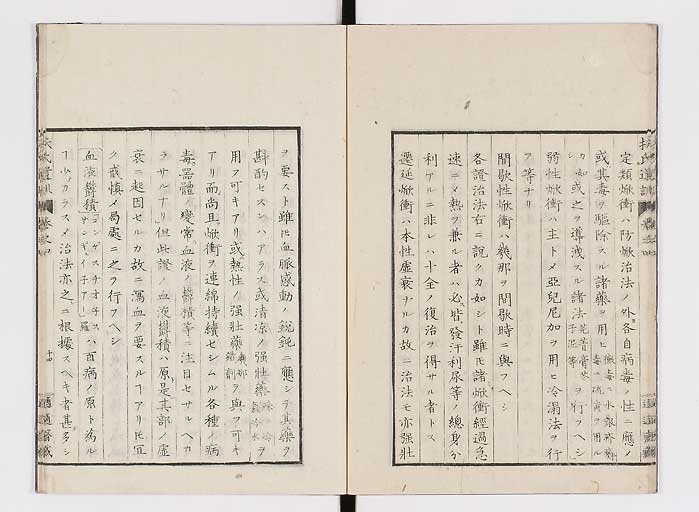 定類焮衝ハ防焮治法ノ外各自病毒ノ性ニ應ノ
或其毒ヲ驅除スル諸藥ヲ用ヒ
カ如或之ヲ導洩スル諸法 ヲ行フヘシ
弱性焮衝ハ主トメ亞兒尼加ヲ用ヒ冷溻法ヲ行
フ等ナリ
間歇性焮衝ハ幾那ヲ間歇時ニ與フヘシ
各證治法右ニ説クカ如シト雖𪜈諸焮衝經過急
速ニメ熱ヲ兼ル者ハ必皆發汗利尿等ノ總身分
利アルニ非レハ十全ノ復治ヲ得サル者トス
遷延焮衝ハ本性虚衰ナルカ故ニ治法モ亦强壯
ヲ要スト雖𪜈血脈感動ノ鋭鈍ニ應シテ其藥ヲ
斟酌セスンハアラス或清凉ノ强壯藥 ヲ
用フ可キアリ或熱性ノ强壯藥 ヲ與フ可キ
アリ而尚且焮衝ヲ連綿持續セシムル各種ノ病
毒器體ノ變常血液ノ欝積等ニ注目セサルヘカ
ラサルナリ但此證ノ血液欝積ハ原是其部ノ虚
衰ニ起因セルカ故ニ瀉血ヲ要スルヿアリ𪜈宜
ク戒慎メ局處ニ之ヲ行フヘシ
血液欝積 ハ百病ノ原ト為ル
ヿ少カラスメ治法亦之ニ根據スヘキ者甚多シ
十四